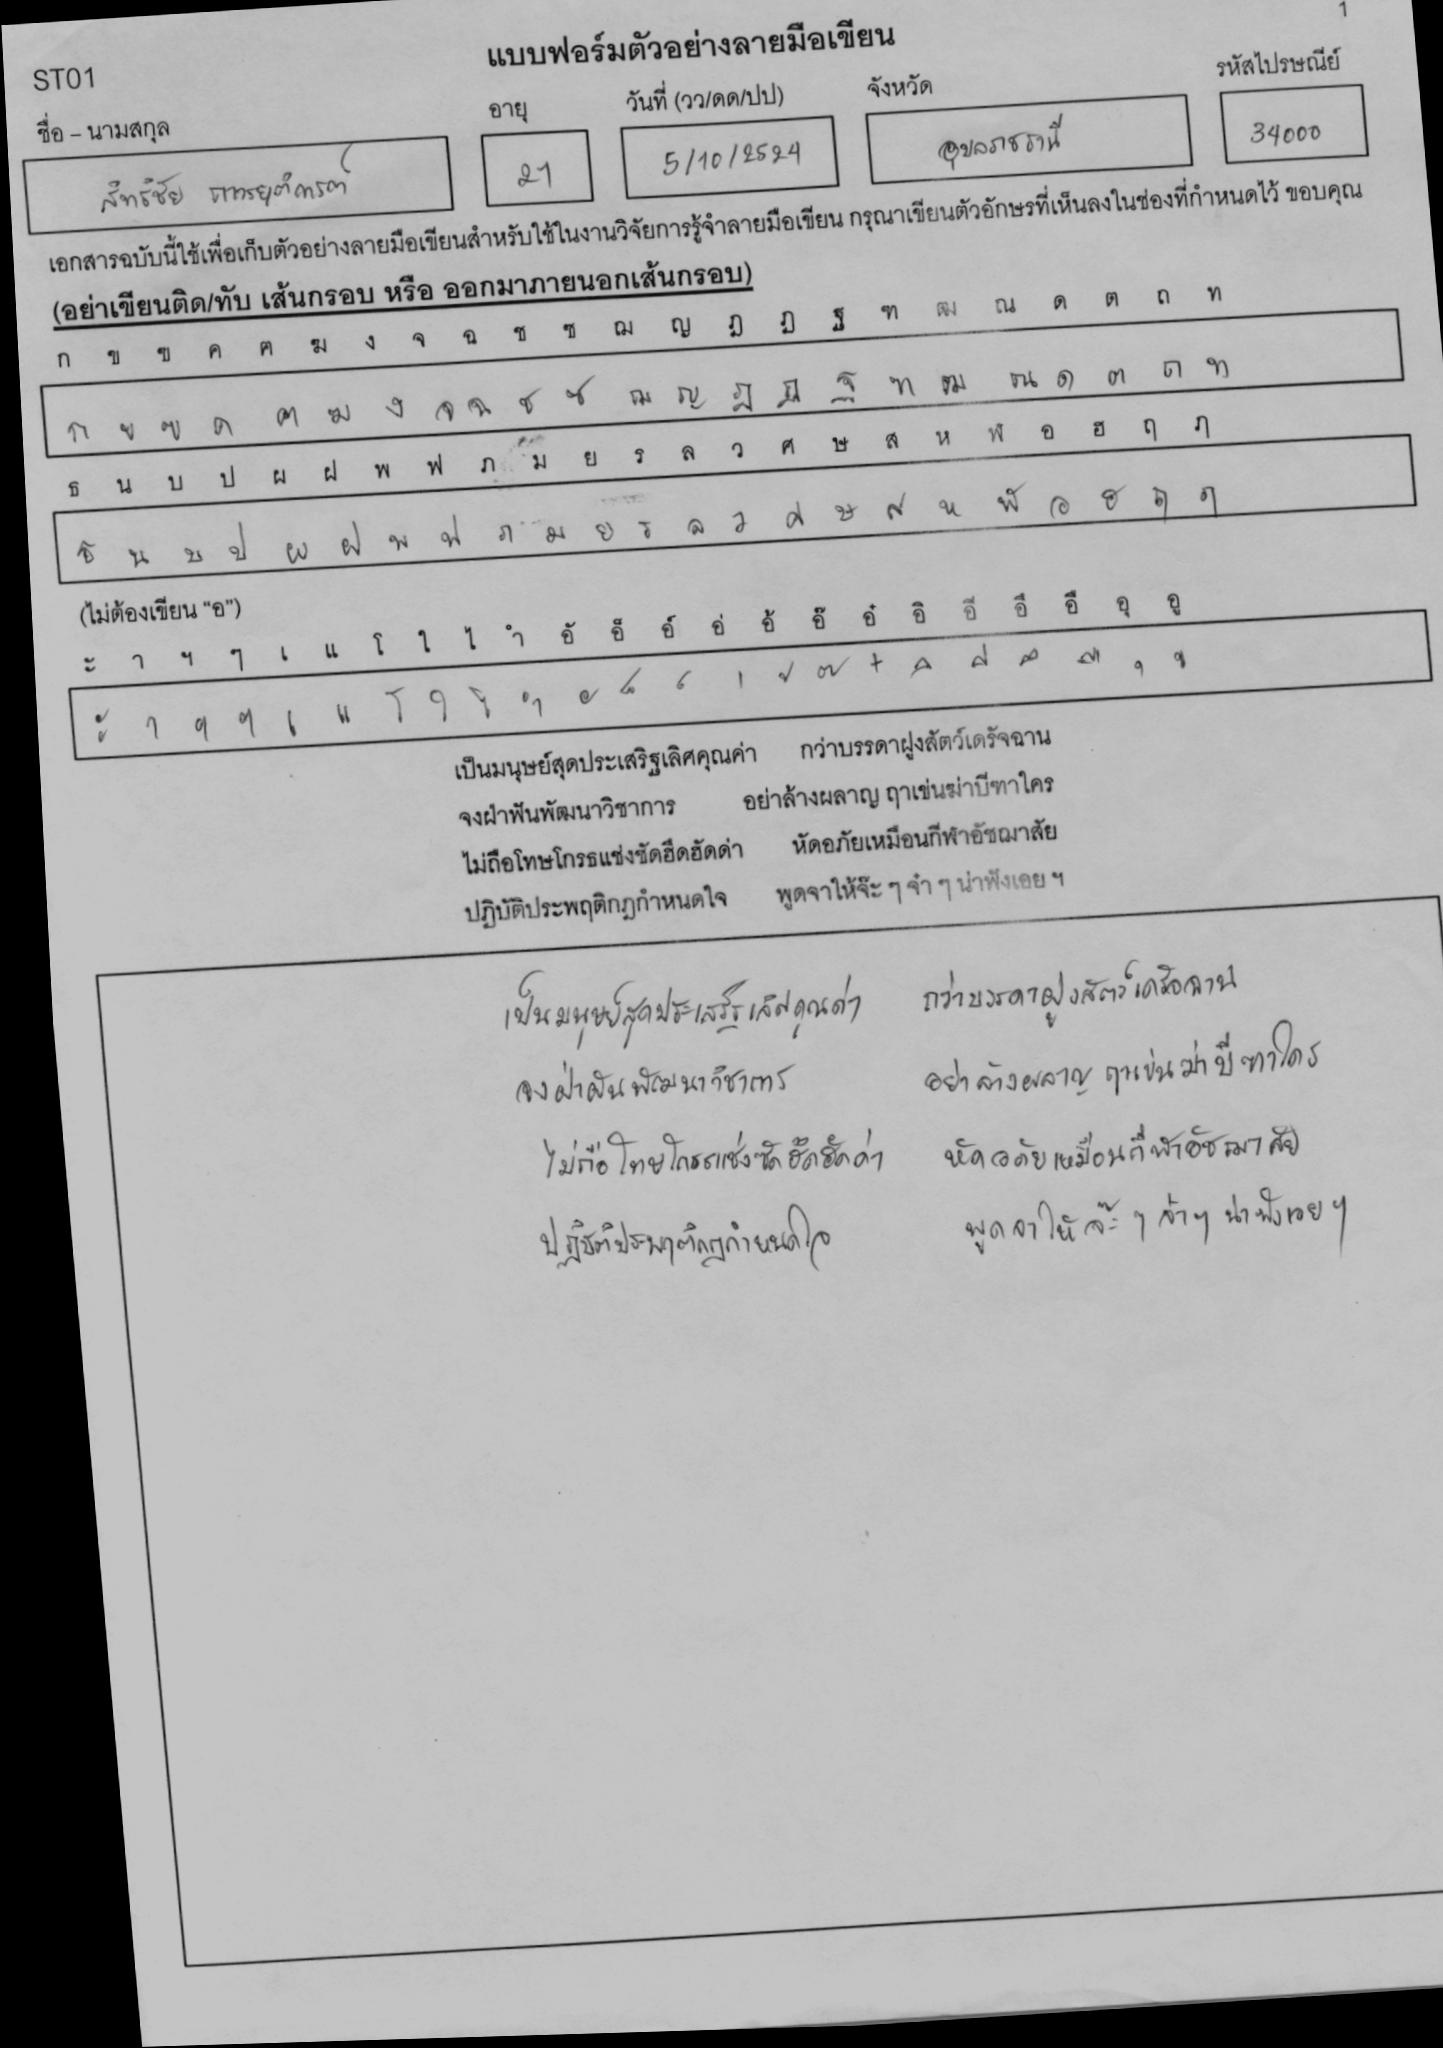 1
ST01
แบบฟอร์มตัวอย่างลายมือเขียน
ชื่อ – นามสกุล อายุ วันที่ (วว/ดด/ปป) จังหวัด รหัสไปรษณีย์
สิทธิชัย 21 5/10/2524 อุบลราชธานี 34000
เอกสารฉบับนี้ใช้เพื่อเก็บตัวอย่างลายมือเขียนสำหรับใช้ในงานวิจัยการรู้จำลายมือเขียน กรุณาเขียนตัวอักษรที่เห็นลงในช่องที่กำหนดไว้ ขอบคุณ
(อย่าเขียนติด/ทับ เส้นกรอบ หรือ ออกมาภายนอกเส้นกรอบ)
ก ข ฃ ค ฅ ฆ ง จ ฉ ช ซ ฌ ญ ฎ ฏ ฐ ฑ ฒ ณ ด ต ถ ท
ก ข ฃ ค ฅ ฆ ง จ ฉ ช ซ ฌ ญ ฎ ฏ ฐ ฑ ฒ ณ ด ต ถ ท
ธ น บ ป ผ ฝ พ ฟ ภ ม ย ร ล ว ศ ษ ส ห ฬ อ ฮ ฤ ภ
ธ น บ ป ผ ฝ พ ฟ ภ ม ย ร ล ว ศ ษ ส ห ฬ อ ฮ ฤ ฦ
(ไม่ต้องเขียน "อ")
ะ า ฯ ๆ เ แ โ ใ ไ ำ อั อ็ อ์ อ่ อ้ อ๊ อ๋ อิ อี อึ อื อุ อู
ะ า ฯ ๆ เ แ โ ใ ไ ำ ั ็ ์ ่ ้ ๊ ๋ ิ ี ึ ื ุ ู
เป็นมนุษย์สุดประเสริฐเลิศคุณค่า กว่าบรรดาฝูงสัตว์เดรัจฉาน
จงฝ่าฟันพัฒนาวิชาการ อย่าล้างผลาญ ฤาเข่นฆ่าบีฑาใคร
ไม่ถือโทษโกรธแช่งซัดฮึดฮัดด่า หัดอภัยเหมือนกีฬาอัชฌาสัย
ปฏิบัติประพฤติกฎกำหนดใจ พูดจาให้จ๊ะ ๆ จ๋า ๆ น่าฟังเอย ฯ
เป็นมนุษย์สุดประเสริฐเลิศคุณค่า กว่าบรรดาฝูงสัตว์เดรัจฉาน
จงฝ่าฟันพัฒนาวิชาการ อย่าล้างผลาญ ฤาเข่นฆ่าบีฑาใคร
ไม่ถือโทษโกรธแช่งซัดฮึดฮัดด่า หัดอภัยเหมือนกีฬาอัชฌาสัย
ปฏิบัติประพฤติกฎกำหนดใจ พูดจาให้จ๊ะ ๆ จ๋า ๆ น่าฟังเอย ฯ